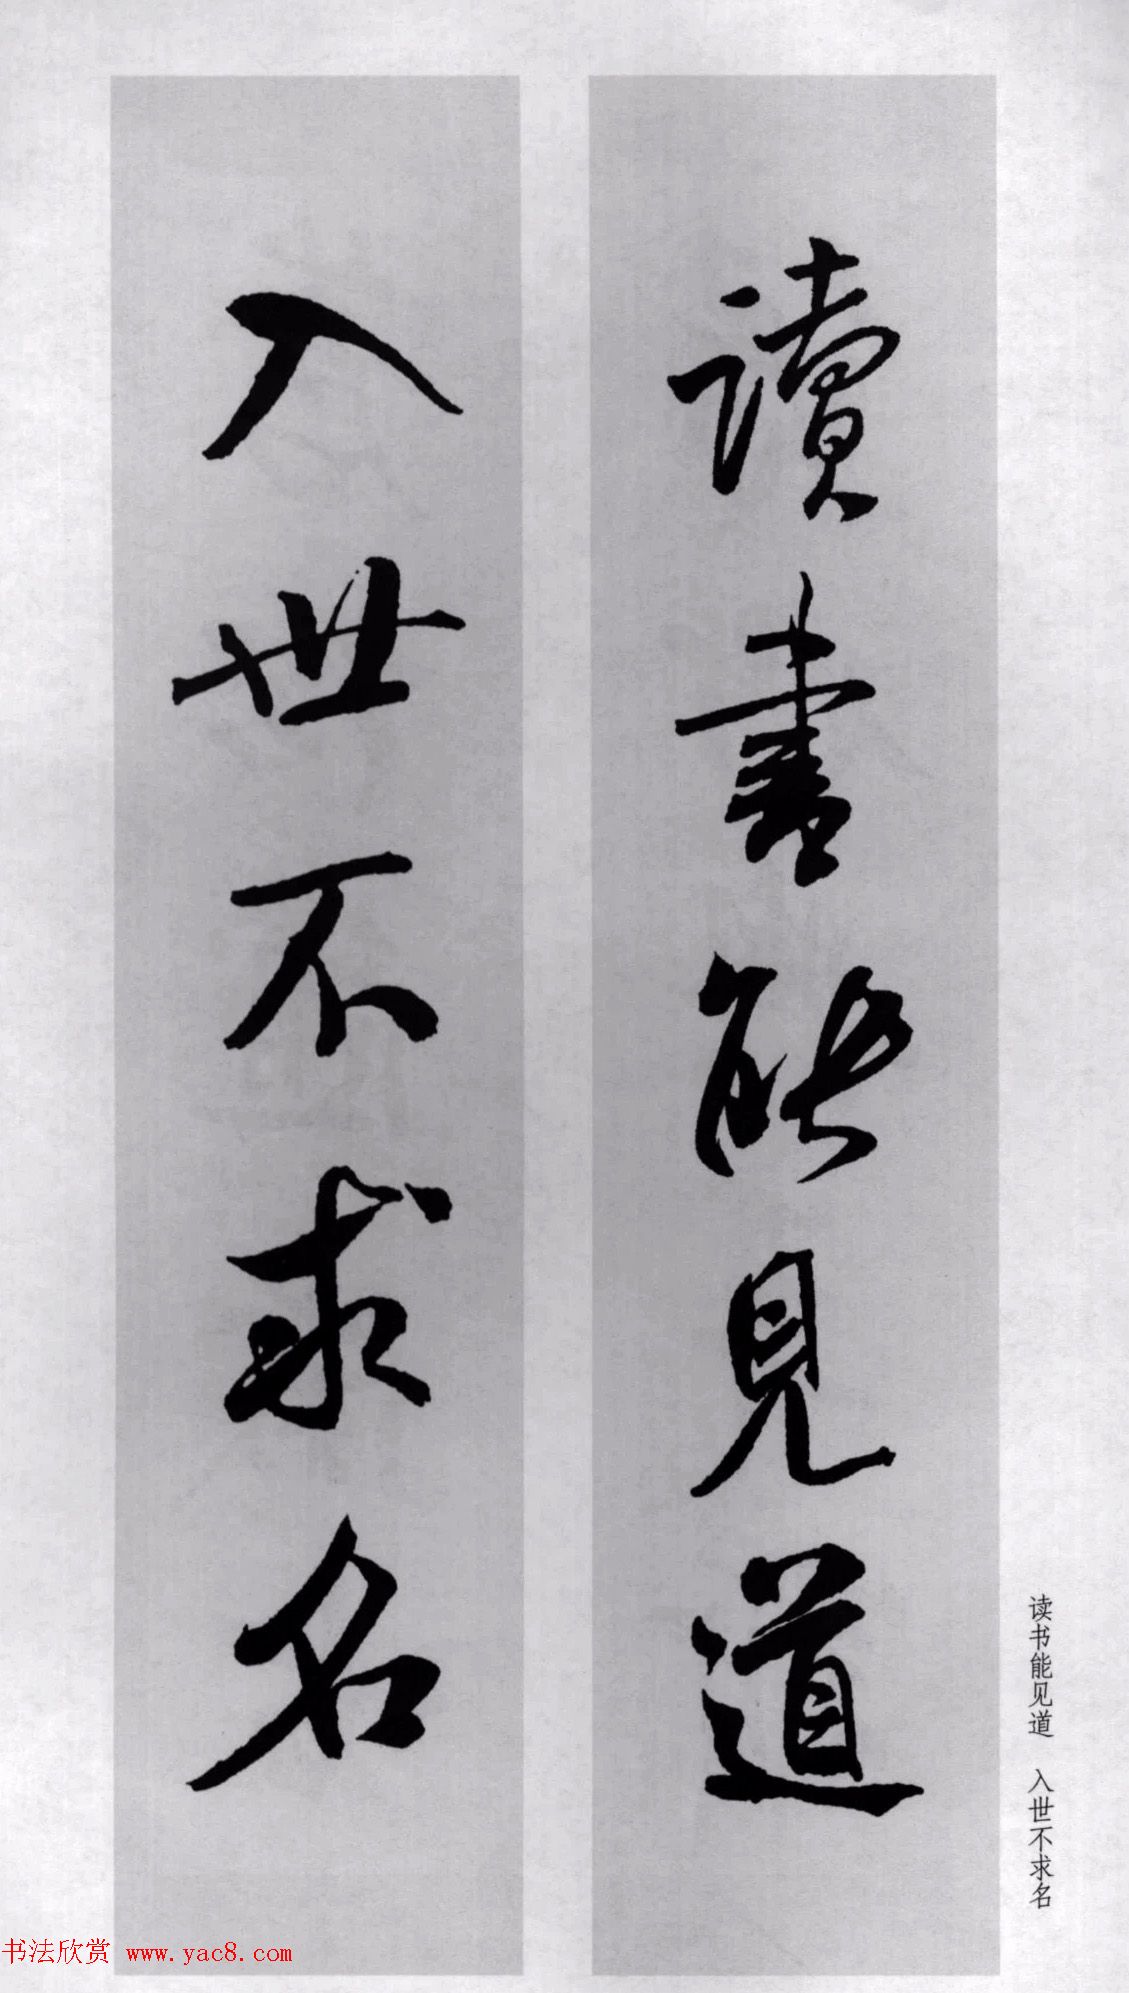 讀書能見道
入世不求名
读书能见道　入世不求名
书法欣赏 www.yac8.com